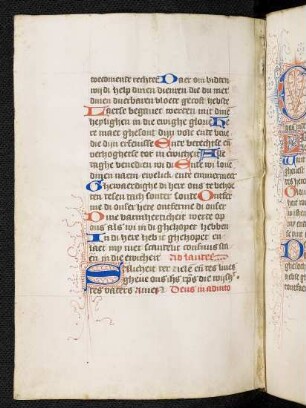 voetmente rechter Daer om bidden
wi di help dinen dienren die du met
dinen duerbaren bloet gecost hebste
Laetse begauet werren mit dine
heyligen in die ewighe glorie He
re maet ghesont dijn volc ende bene
die dijn erfenisse Ende berechtse en
verhoghetse tot in ewicheit Alle
daghe benedien wi di Ende wi loue
dinen naem ewelick ende ummermeer
Ghewaerdighe di here ons te behoe
den desen dach sonder sonde Ontfer
me di onser here ontferme di onser
Dine barmherticheit werde op
ons als wi in di ghehopet hebben
In di here heb ic ghehopet en
laet my niet scandelic confuus sta
en in die ewicheit Ad laudes
Sijlicheit der ziele en des liues
gheue ons ihs xps die wijsh
des vaders Amen Deus in adiuto